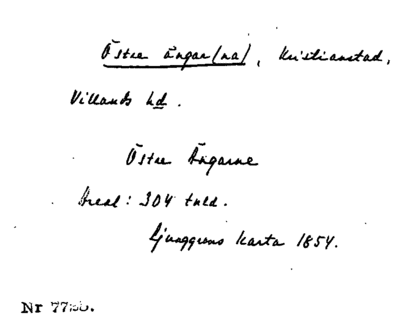 Östre ängar(na), Kristianstad,
Villands hd.
Östre Ängarne
Areal: 304 tnld.
Ljunggrens karta 1854.
Nr